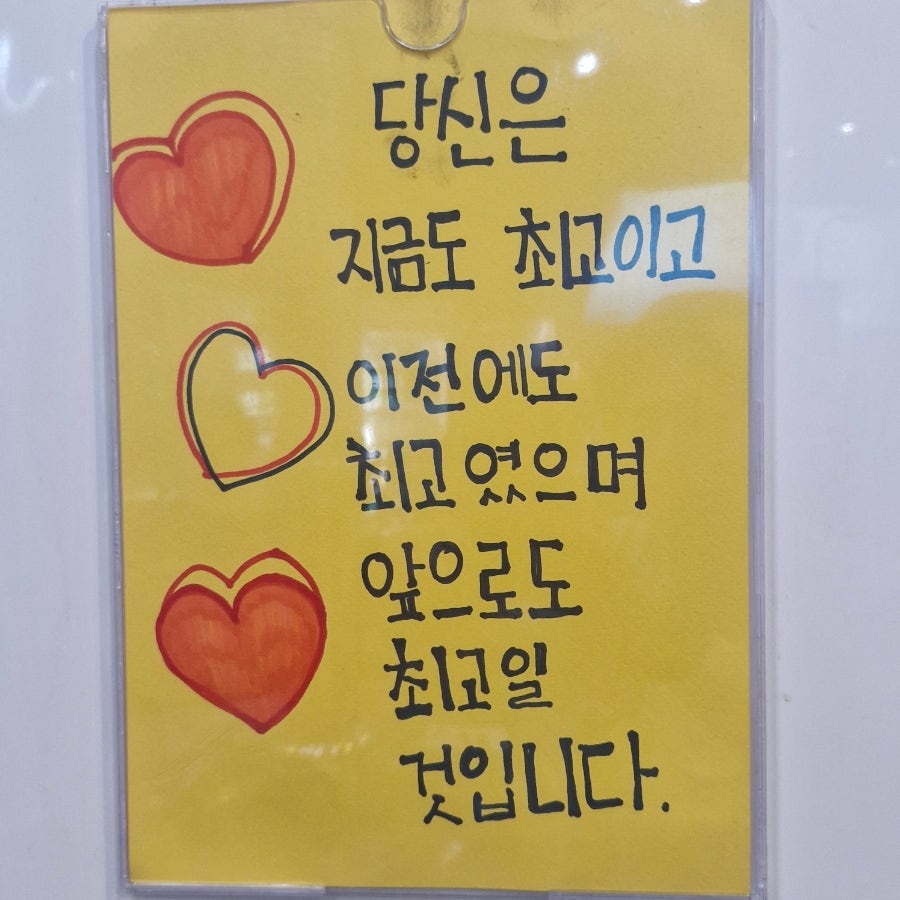 당신은
지금도 최고이고
이전에도
최고였으며
앞으로도
최고일
것입니다.